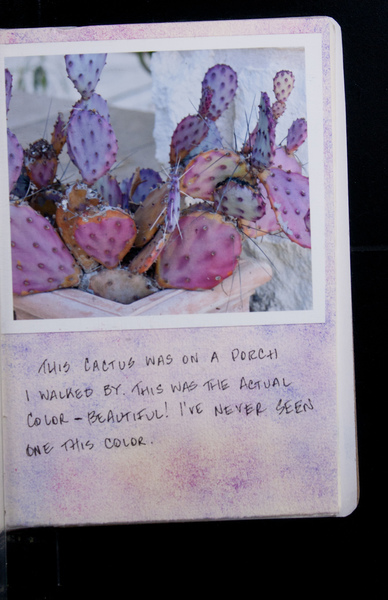 THIS CACTUS WAS ON A PORCH
I WALKED BY. THIS WAS THE ACTUAL
COLOR - BEAUTIFUL! I'VE NEVER SEEN
ONE THIS COLOR.